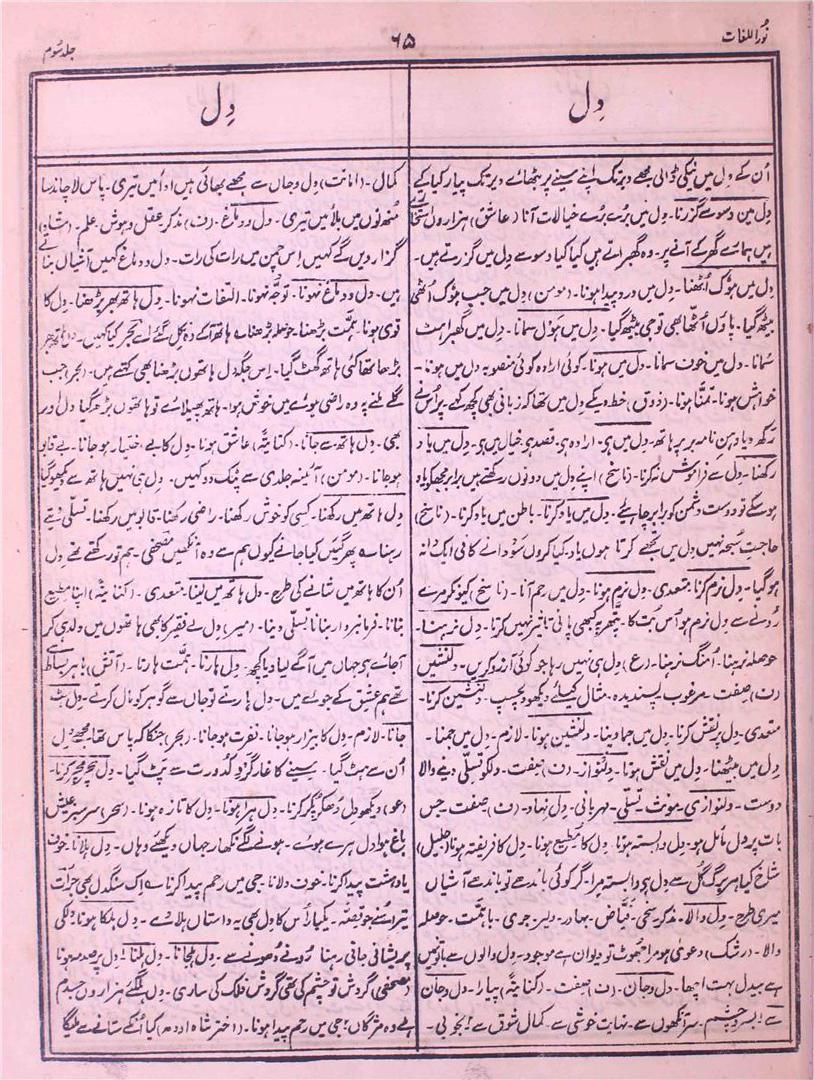 نُور اللغات
۶۵
جلد سُوم
دِل
دِل
اُن کے دِل میں نیکی ڈالی مجھے دیر تک اپنے سینے پر بٹھائے دیر تک پیار کیا کیے
دِل میں وسوسے گزرنا۔ دِل میں بُرے بُرے خیالات آنا (عاشق) ہزاروں
ہیں ہمارے گھر کے آنے پر۔ وہ گھبراتے ہیں کیا کیا وسوسے دِل میں گزرتے ہیں۔
دِل میں ہُوک اُٹھنا۔ دِل میں درد پیدا ہونا۔ (مومن) دِل میں جب ہُوک اُٹھی
بیٹھ گیا۔ پاؤں اُٹھا بھی تو جی بیٹھ گیا۔ دِل میں ہَول سمانا۔ دِل میں گھبراہٹ
سمانا۔ دِل میں خوف سمانا۔ دل میں ہونا۔ کوئی ارادہ کوئی منصوبہ دل میں ہونا۔
خواہش ہونا۔ تمنّا ہونا۔ (ذوق) خط دیکے دِل میں تھا کہ زبانی بھی کچھ کہے۔ پر اُس نے
رکھ دیا دہن نامہ بر پر ہاتھ۔ دِل میں ہی۔ ارادہ ہی۔ قصد ہی خیال میں ہی۔ دِل میں یاد
رکھنا۔ دل سے فراموش نہ کرنا۔ (ناسخ) اپنے دل میں دونوں رکھتے ہیں برابر مجھکو یاد
ہو سکے تو دوست دشمن کو برابر چاہیے۔ دِل میں یاد کرنا۔ باطن میں یاد کرنا۔ (ناسخ)
حاجتِ سُبحہ نہیں دل میں تجھے کرتا ہوں یاد۔ کیا کروں سَو دانے کافی ایک دانہ
ہو گیا۔ دِل نرم کرنا۔ متعدی۔ دِل نرم ہونا۔ دل میں رحم آنا۔ (ناسخ) کیونکر مرے
رُونے سے دل نرم ہو اُس بُت کا۔ پتھر پہ کبھی پانی تاثیر نہیں کرتا۔ دِل نہ رہنا۔
حوصلہ نہ رہنا۔ اُمنگ نہ رہنا۔ (ع) دِل ہی نہیں رہا جو کوئی آرزو کریں۔ دلنشیں
(ف) صفت۔ مرغوب پسندیدہ۔ مثال کیلئے دیکھو دلچسپ۔ دلنشین کرنا۔
متعدی۔ دل پر نقش کرنا۔ دل میں جما دینا۔ دلنشین ہونا۔ لازم۔ دل میں جمنا۔
دِل میں بیٹھنا۔ دِل میں نقش ہونا۔ دلنواز۔ (ف) صفت۔ دلکو تسلّی دینے والا
دوست۔ دلنوازی۔ مونث۔ تسلّی۔ مہربانی۔ دل نہاد۔ (ف) صفت جس
بات پر دِل مائل ہو۔ دِل وابستہ ہونا۔ دِل کا مطیع ہونا۔ دل کا فریفتہ ہونا (جلیل)
شاخ کیا ہر برگِ گُل سے دل ہی وابستہ مرا۔ گر کوئی باندھے تو باندھے آشیاں
میری طرح۔ دِل والا۔ مذکر سخی۔ فیّاض۔ بہادر۔ دلیر۔ جری۔ باہمّت۔ حوصلہ
والا۔ (رشک) دعویٰ ہو مرا جُھوٹ تو دیوان ہے موجود۔ دل والوں سے
ہے بیدل بہت اچھا۔ دل و جان۔ (ف) صفت۔ (کنایۃً) پیارا۔ دِل و جان
سے۔ بسر و چشم۔ سر آنکھوں سے۔ نہایت خوشی سے۔ کمال شوق سے۔ بخوبی۔
کمال۔ (امانت) دِل و جاں سے مجھے بھاتی ہیں ادائیں تیری۔ پاس لا چاند سا
مُنھ لوں میں بلائیں تیری۔ دل و دماغ۔ (ف) مذکر عقل و ہوش۔ علم۔
گزار دیں گے کہیں اِس چمن میں رات کی رات۔ دل و دماغ کہیں آشیاں بنانے
ہیں۔ دل و دماغ نہونا۔ توجّہ نہونا۔ التفات نہونا۔ دِل ہاتھ بھر بڑھنا۔ دل کا
قوی ہونا۔ ہمّت بڑھنا۔ حوصلہ بڑھنا۔
بڑھا تھا کئی ہاتھ گھٹ گیا۔ اس جگہ دل ہاتھوں بڑھنا بھی کہتے ہیں۔ (بحر) جب
گلے ملنے پہ وہ راضی ہوئے میں خوش ہوا۔ ہاتھ پھیلائے تو ہاتھوں بڑھ گیا دل اور
بھی۔ دِل ہاتھ سے جانا۔ (کنایۃً) عاشق ہونا۔ دِل کا بے اختیار ہو جانا۔ بے قابو
ہو جانا۔ (مومن) آئینہ جلدی سے پٹک دو کہیں۔ دِل ہی نہیں ہاتھ سے
دِل ہاتھ میں رکھنا۔ کسی کو خوش رکھنا۔ راضی رکھنا۔ قابو میں رکھنا۔ تسلّی دیتے
رہنا۔ پھر گئیں کیا جانے کیوں ہم سے وہ آنکھیں مصحفی۔ ہم تو رکھتے تھے دِل
اُن کا ہاتھ میں شانے کی طرح۔ دل ہاتھ میں لینا۔ متعدی۔ (کنایۃً) اپنا مطیع
بنانا۔ فرمانبردار بنانا۔ تسلّی دینا۔ (میر) دل بے فقیر کا بھی ہاتھوں میں ولدہی کر
آجائے ہی جہاں میں آگے لیا دیا کچھ۔ دِل ہارنا۔ ہمّت ہارنا۔ (آتش)
تھے ہم عشق کے جوئے میں۔ دِل ہارتے تو جاں سے گوہر کو مال کرتے۔ دِل ہٹ
جانا۔ لازم۔ دِل کا بیزار ہو جانا۔ نفرت ہو جانا۔ (بحر) جنکا کہ پاس تھا مجھے دل
اُن سے ہٹ گیا۔ سینے کا غار گردِ کُدورت سے پٹ گیا۔ دل ہچر مچر کرنا۔
(عو) دیکھو دل دُھکڑ پُکڑ کرنا۔ دِل ہرا ہونا۔ دِل کا تازہ ہونا۔ (سحر) سرسبز عیش
باغ ہوا دل ہرے ہوئے۔ ہونے لگے نکھار جہاں دیکھیے وہاں۔ دِل ہلانا۔ خوف
یا دہشت پیدا کرنا۔ خوف دلانا۔ جی میں رحم پیدا کرنا۔ ہے اک سنگدل بھی جرأت
تیرا سُنے جو قصّہ۔ یکبار اُس کا دِل بھی یہ داستاں ہلائے۔ دِل ہلکا ہونا۔ دلکی
پریشانی جاتی رہنا رُونے دھونے سے۔ دِل ہلجانا۔ دل ہلنا۔ دِل پر صدمہ ہونا
(مصحفی) گردش تو چشم کی تھی گردش فلک کی ساری۔ دِل ہلگئے ہزاروں جسدم
ہلے وہ مژگاں۔ جی میں رحم پیدا ہونا۔ (اختر شاہ اودھ) کیا اُنکے ستانے سے ملیگا